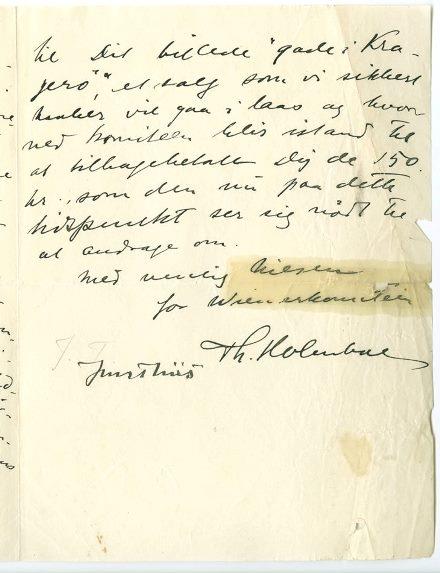 til Dit billede "gade i Kra-
gerö", et salg som vi sikkert
haaber vil gaa i laas og hvor
ved komiteen blir istand til
at tilbagebetale Dig de 150
kr., som den nu paa dette
tidspunkt ser sig nødt til
at andrage om.
Med venlig hilsen
for Wienerkomiteen
Th. Holmboe
Jens Thiis